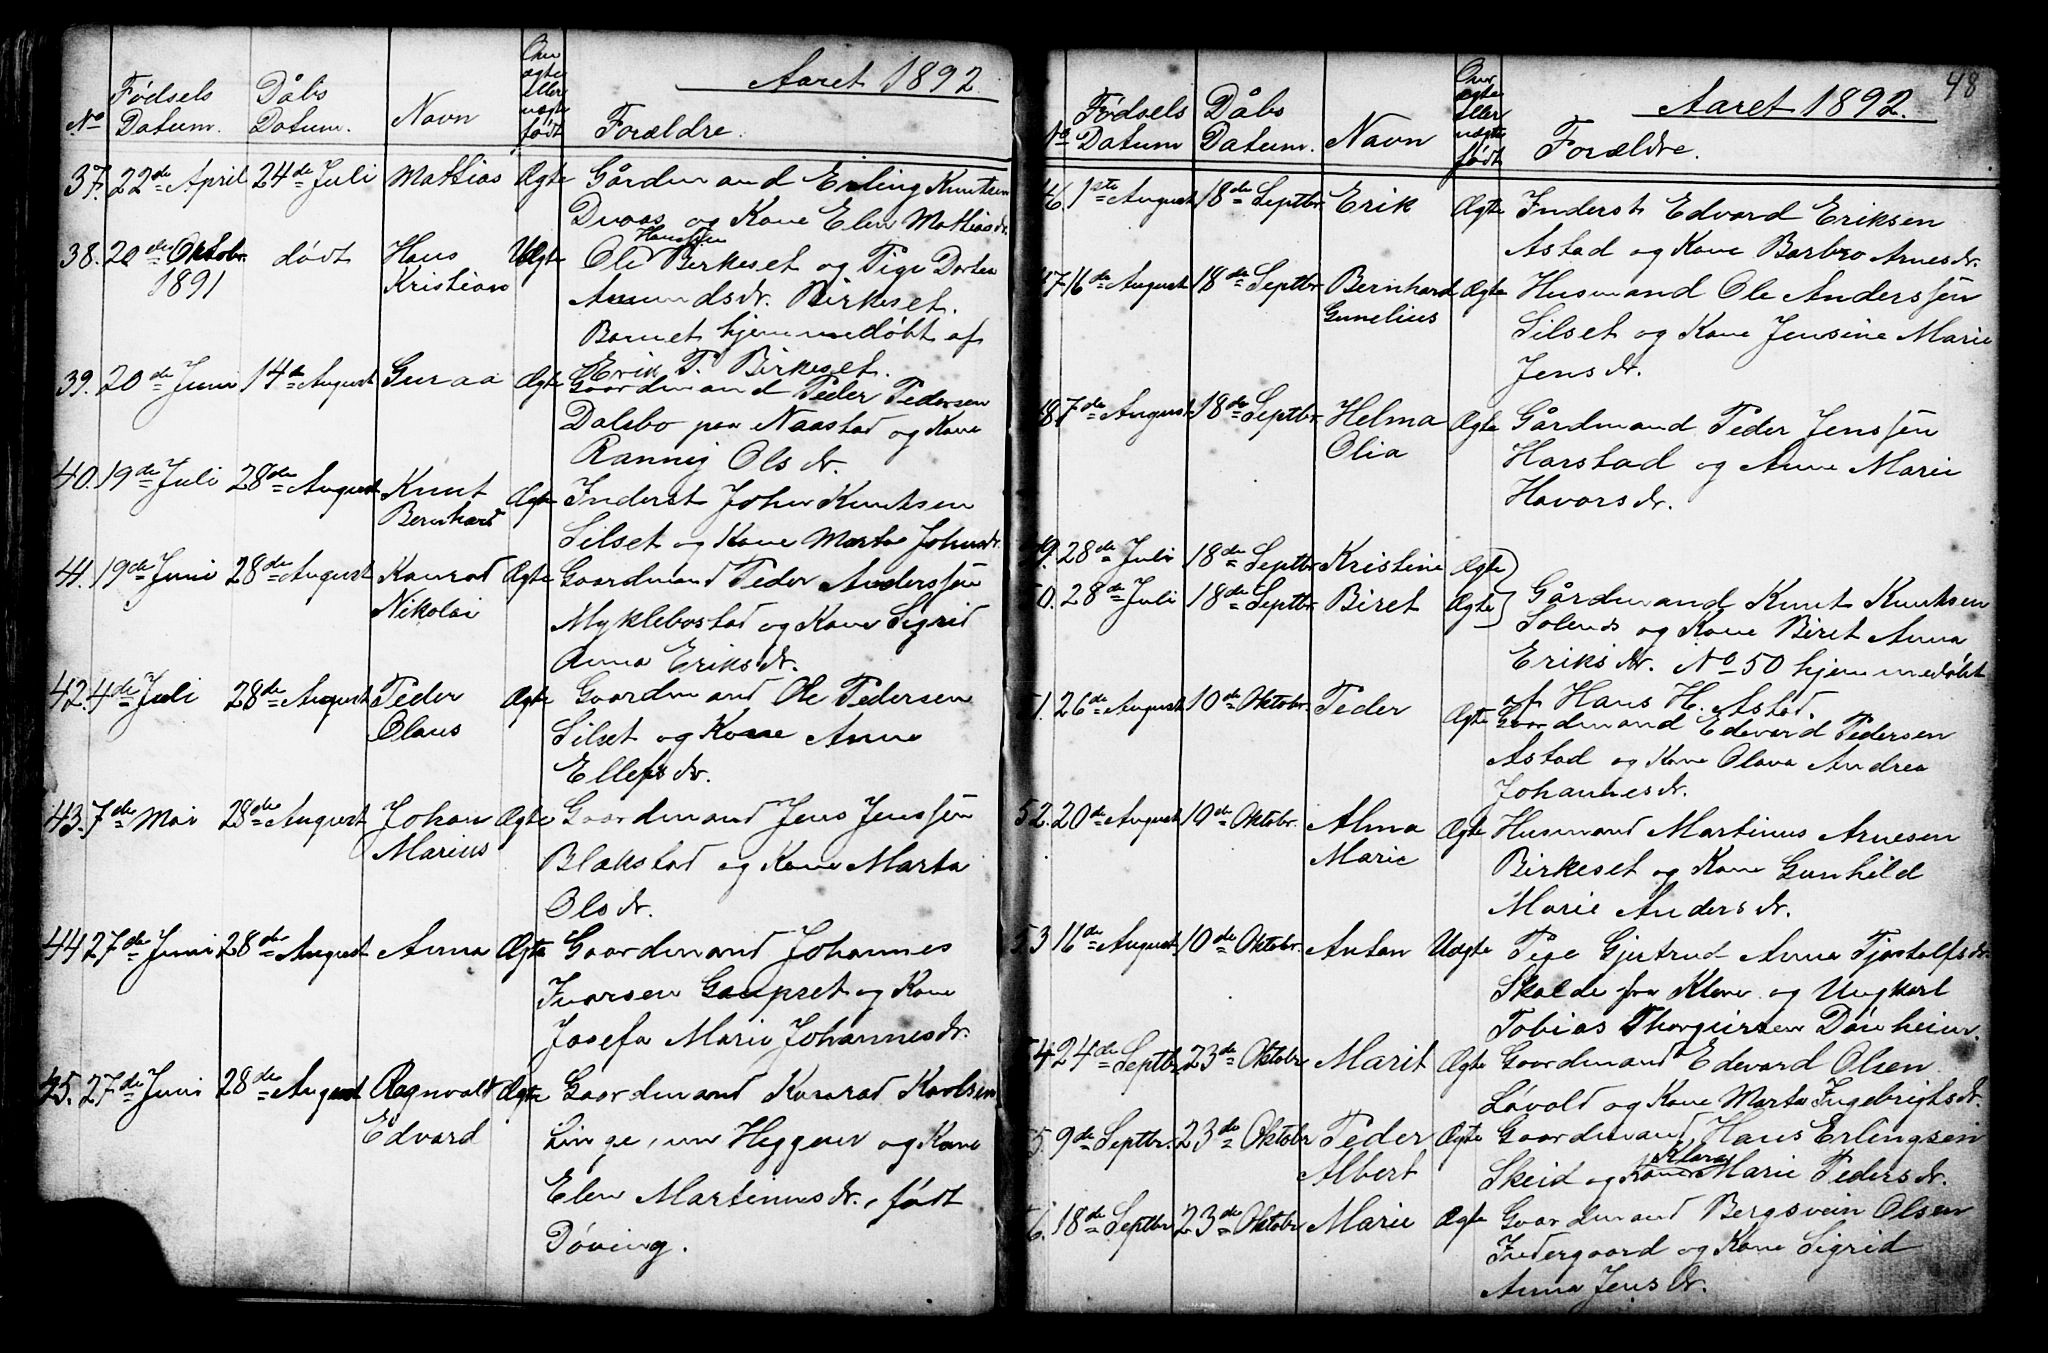 Aaret 1892
No
Fødsels Datum.
Dåbs Datum.
Navn
Om ægte eller uægte født
Forældre.
37. 22de April 24de Juli Mattias Ægte Gårdmand Erling Knutsen
og Kone Elen Mattiasdr.
38. 20de Oktobr. døbt Hans Uægte Ole Hanssen Birkeset og Pige Dortea
1891 Kristian Amundsdr. Birkeset.
Barnet hjemmedøbt af
Erik T. Birkeset.
39. 20de Juni 14de August Guraa Ægte Gaardmand Peder Pedersen
Dalebo paa Naastad og Kone
Rannig Olsdr.
40. 19de Juli 28de August Knut Ægte Inderst John Knutsen
Bernhard Silset og Kone Marta Johnsdr.
41. 19de Juni 28de August Konrad Ægte Gaardmand Peder Anderssen
Nikolai Myklebostad og Kone Sigrid
Anna Eriksdr.
42. 4de Juli 28de August Peder Ægte Gaardmand Ole Pedersen
Olaus Silset og Kone Anne
Ellefsdr.
43. 7de Mai 28de August Johan Ægte Gaardmand Jens Jenssen
Marius Blakstad og Kone Marta
Olsdr.
44 27de Juni 28de August Anna Ægte Gaardmand Johannes
Ivarsen Gaupset og Kone
Josefa Marie Johannesdr.
45. 27de Juni 28de August Ragnvald Ægte Gaardmand Konrad Karlsen
Edvard Linge, nu Heggem og Kone
Elen Martinusdr., født
Døving.
48
Aaret 1892.
No
Fødsels Datum
Dåbs Datum.
Navn
Om ægte eller uægte født
Forældre.
46. 1ste August 18de Septbr. Erik Ægte Inderst Edvard Eriksen
Astad og Kone Barbro Arnesdr.
47 16de August 18de Septbr. Bernhard Ægte Husmand Ole Anderssen
Gunelius Silset og Kone Jensine Marie
Jensdr.
48. 7de August 18de Septbr. Helma Ægte Gårdmand Peder Jenssen
Olia Harstad og Anne Marie
Havorsdr.
49. 28de Juli 18de Septbr. Kristine Ægte
50. 28de Juli 18de Septbr. Biret Ægte Gårdmand Knut Knutsen
Solends og Kone Biret Anna
Eriksdr. No 50 hjemmedøbt
af Hans H. Astad.
51. 26de August 10de Oktobr. Peder Ægte Gaardmand Edvard Pedersen
Astad og Kone Olava Andrea
Johannesdr.
52. 20de August 10de Oktobr. Alma Ægte Husmand Martinus Arnesen
Marie Birkeset og Kone Gunhild
Marie Andersdr.
53 16de August 10de Oktobr. Anton Uægte Pige Gjertrud Anna Tjostolfsdr.
Skalde fra Kleve og Ungkarl
Tobias Thorgeirsen Dønheim.
54 24de Septbr. 23de Oktobr Marit Ægte Gaardmand Edvard Olsen
Løvold og Kone Marta Ingebrigtsdr.
55. 9de Septbr. 23de Oktobr Peder Ægte Gaardmand Hans Erlingsen
Albert Skeid og Kone Klara Marie Pedersdr.
56. 18de Septbr 23de Oktobr Marie Ægte Gaardmand Bergsvein Olsen
Indergaard og Kone Sigrid
Anna Jensdr.